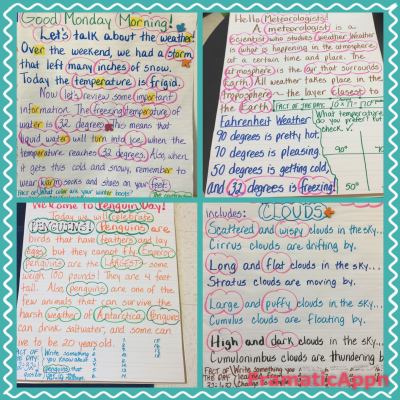 Good Monday Morning!
Let's talk about the weather.
Over the weekend, we had a storm
that left many inches of snow.
Today the temperature is frigid.
Now let's review some important
information. The freezing temperature of
water is 32 degrees. This means that
liquid water will turn into ice when the
temperature reaches 32 degrees. Also, when
it gets this cold and snowy, remember to
wear warm socks and shoes on your feet.
Hello Meteorologists!
A meteorologist is a
scientist who studies weather. Weather
is what is happening in the atmosphere
at a certain time and place. The
atmosphere is the air that surrounds
Earth. All weather takes place in the
troposphere - the layer closest to
the Earth.
FACT OF THE DAY
What temperature
do you prefer? Put
check ✓.
90°
70°
50°
Fahrenheit Weather
90 degrees is pretty hot.
70 degrees is pleasing.
50 degrees is getting cold,
And 32 degrees is freezing!
Welcome to Penguin Day!
Today we will celebrate
PENGUINS! Penguins are
birds that have feathers and lay
eggs but they cannot fly. Emperor
Penguins are the largest some
weigh 100 pounds! They are 4 feet
tall. Also, penguins are one of the
few animals that can survive the
harsh weather of Antarctica. Penguins
can drink saltwater, and some can
live to be 20 years old.
FACT OF THE DAY
Write something
you know about
penguins
Includes: CLOUDS
Scattered and wispy clouds in the sky...
Cirrus clouds are drifting by.
Long and flat clouds in the sky...
Stratus clouds are moving by.
Large and puffy clouds in the sky...
Cumulus clouds are floating by.
High and dark clouds in the sky...
Cumulonimbus clouds are thundering b
FACT OF THE DAY
Write something you